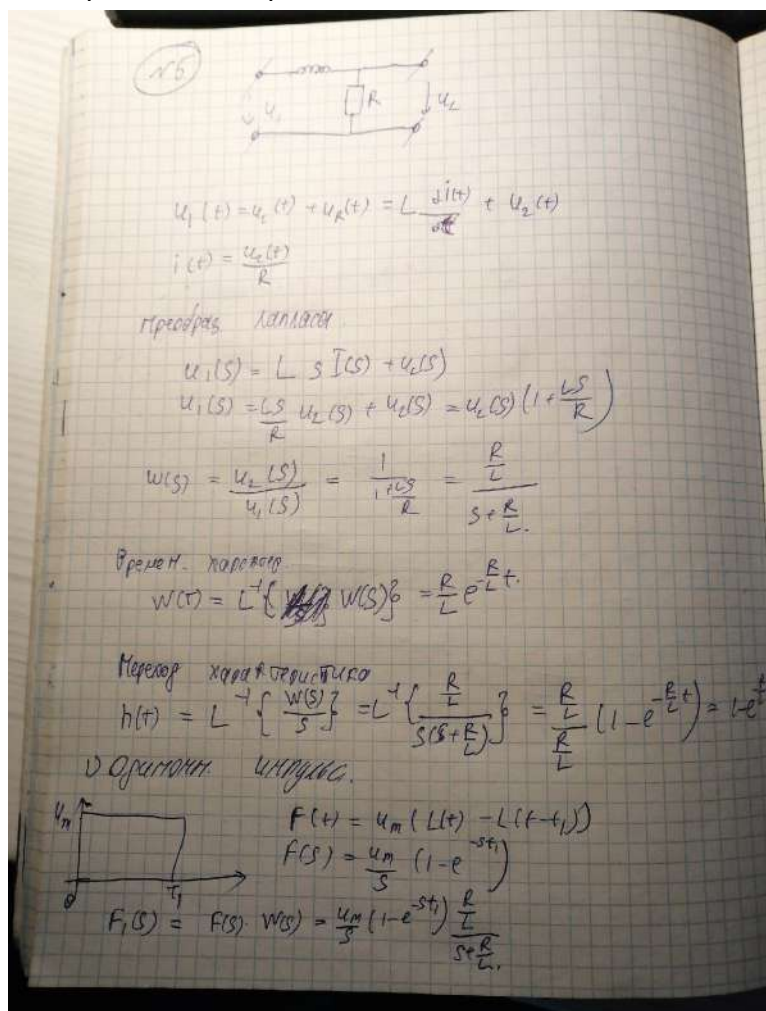 №5
R
u₁
u₂
u₁(t) = u_L(t) + u_R(t) = L di(t)/dt + u₂(t)
i(t) = u₂(t)/R
Преобраз Лапласа
u₁(s) = L s I(s) + u₂(s)
u₁(s) = Ls/R u₂(s) + u₂(s) = u₂(s) (1 + Ls/R)
W(s) = u₂(s)/u₁(s) = 1/(1 + Ls/R) = (R/L)/(s + R/L).
Времен.
W(t) = L⁻¹{W(s)} = R/L e^(-R/L t).
Переход характеристика
h(t) = L⁻¹{W(s)/s} = L⁻¹{(R/L)/(s(s + R/L))} = (R/L)/(R/L) (1 - e^(-R/L t)) = 1-e
1) импульс.
u_m
F(t) = u_m (1(t) - 1(t-t₁))
F(s) = u_m/s (1 - e^(-st₁))
0
t₁
F₁(s) = F(s) · W(s) = u_m/s (1 - e^(-st₁)) (R/L)/(s + R/L).